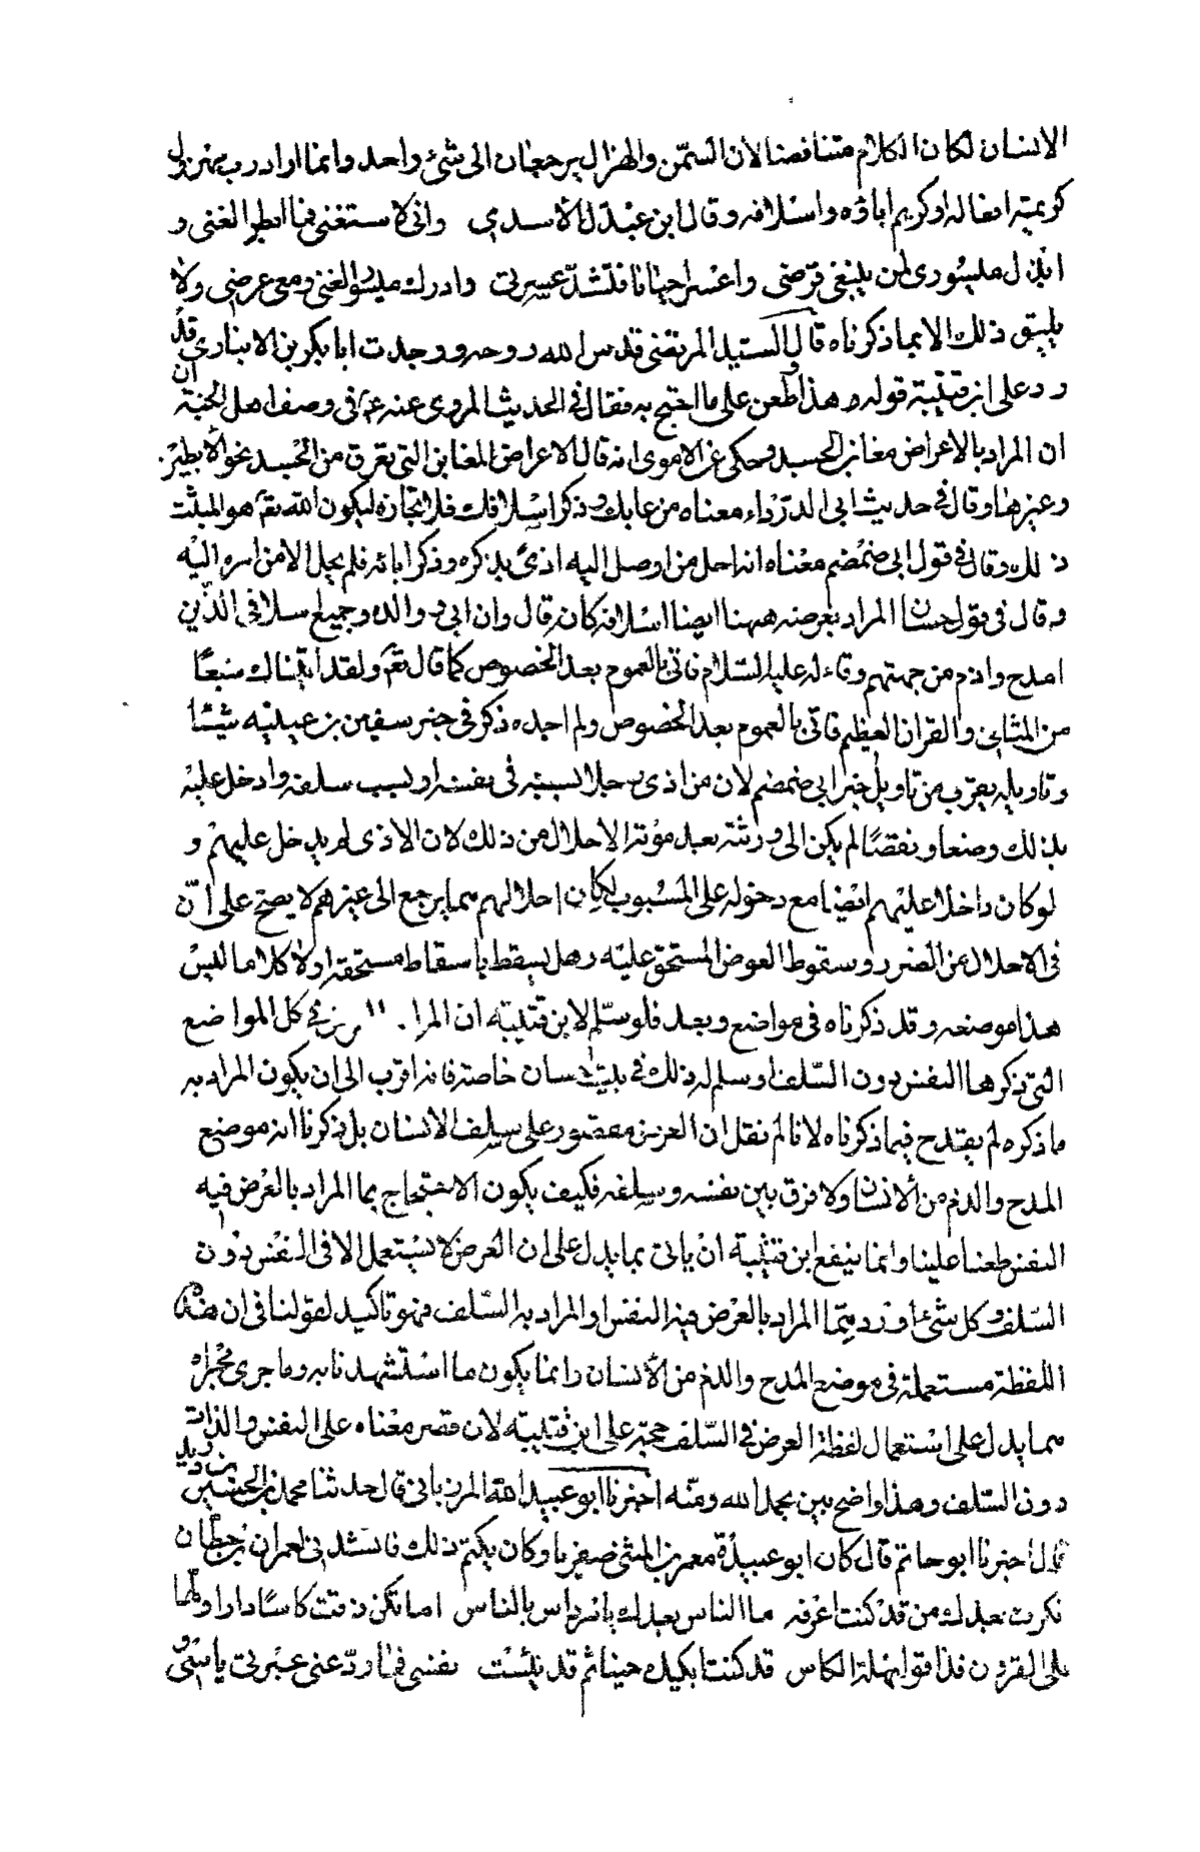 الانسان لكان الكلام متناقضا لان السّمن والهزال يرجعان الى شئ واحد وانما اراد رب مهزول
كريمة افعاله او كريم اباؤه واسلافه وقال ابن عبدل الاسدي وانى لاستغنى فما ابطر الغنى و
ابذل ميسورى لمن يبتغى قرضى واعسر احيانا فتشتدّ عسرتى وادرك ميسور الغنى ومعى عرضى ولا
يليق ذلك الا بما ذكرناه قال السيد المرتضى قدس الله روحه ووجدت ابا بكر بن الانبارى قد
رد على ابن قتيبة قوله هذا وطعن على ما احتج به فقال فى الحديث المروى عنه ع فى وصف اهل الجنة ان
ان المراد بالاعراض مغابن الجسد وحكى عن الاموى انه قال الاعراض المغابن التى تعرق من الجسد نحو الابطين
وغيرها وقال فى حديث ابى الدرداء معناه من عابك وذكر اسلافك فلا تجازه ليكون الله تع هو المثبت
ذلك وقال فى قول ابى ضمضم معناه انه احل من اوصل اليه اذى بذكره وذكر ابائه فلم يحل الا من امره اليه
وقال فى قول حسان المراد بعرضه ههنا ايضا اسلافه كانه قال وان ابى و والده وجميع سلافى الذين
امدح واذم من جهتهم وقاء له عليه السّلام فاتى بالعموم بعد الخصوص كما قال تع ولقد اتيناك سبعًا
من المثانى والقران العظيم فاتى بالعموم بعد الخصوص ولم احده ذكر فى خبر سفين بن عيينه شيئا
وتاويله يقرب من تاويل خبر ابى ضمضم لان من اذى رجلا بسبه فى نفسه او بسب سلفه وادخل عليه
بذلك وضعا ونقصًا لم يكن الى ورثته بعد موته الاحلال من ذلك لان الاذى لم يدخل عليهم و
لو كان داخلا عليهم ايضا مع دخوله على المسبوب لكان احلالهم مما يرجع الى غيرهم لا يصح على انّ
فى الاحلال من الضرر وسقوط العوض المستحق عليه وهل يسقط باسقاط مستحقه اولا كلاما ليس
هذا موضعه وقد ذكرناه فى مواضع وبعد فلو سلّم لابن قتيبه ان المرا فى كل المواضع
التى ذكرها النفس دون السّلف او سلم له ذلك فى بيت حسان خاصة فانه اقرب الى ان يكون المراد به
ما ذكره لم يقدح فيما ذكرناه لانا لم نقل ان العرض مقصور على سلف الانسان بل ذكرنا انه موضع
المدح والذم من الانسان ولا فرق بين نفسه وسلفه فكيف يكون الاحتجاج بما المراد بالعرض فيه
النفس طعنا علينا وانما ينفع ابن قتيبة ان ياتى بما يدل على ان العرض لا يستعمل الا فى النفس دون
السّلف وكل شئ اورد مِمّا المراد بالعرض فيه النفس او المراد به السّلف فهو تاكيد لقولنا فى ان هذه
اللفظة مستعملة فى موضع المدح والذم من الانسان وانما يكون ما استشهدنا به وما جرى مجراه
مما يدل على استعمال لفظة العرض فى السّلف حجة على ابن قتيبه لان قصر معناه على النفس والذات
دون السّلف وهذا واضح بين بحمد الله ومنّه اخبرنا ابو عبيد الله المرزبانى قال حدثنا محمد بن الحسين بن دريد
قال اخبرنا ابو حاتم قال كان ابو عبيدة معمر بن المثنى صفريا وكان يكتم ذلك فانشدنى لعمران بن حطان
نكرت بعدك من قد كنت اعرفه ما الناس بعدك يا مرداس بالناس اما تكن ذقت كاسا دار اولها
على القرون فذاقوا نهلة الكاس قد كنت ابكيك حينا ثم قد يئست نفسى فما ردّ عنى عبرتى ياسى و